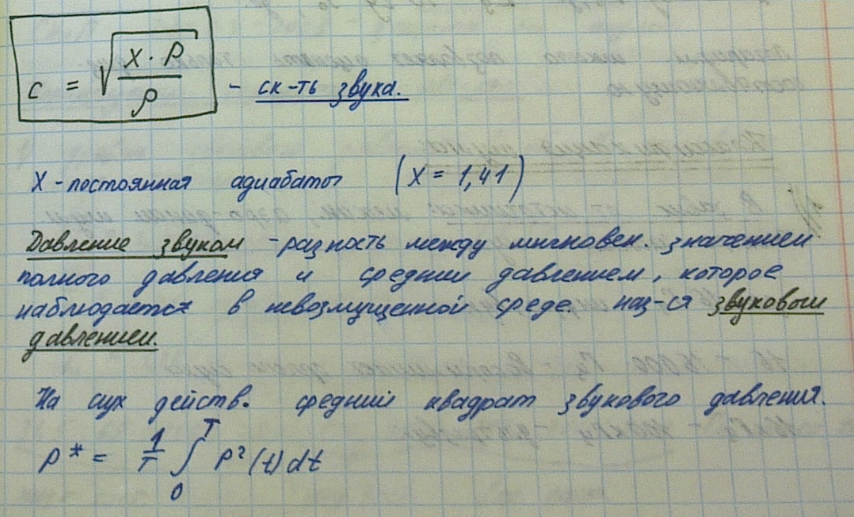 c = √(x · P / ρ) - ск-ть звука.
X - постоянная адиабаты (X = 1,41)
Давление звуком - разность между мгновен. значением
полного давления и средним давлением, которое
наблюдается в невозмущенной среде. наз-ся звуковым
давлением.
На слух действ. средний квадрат звукового давления.
P* = 1/T ∫₀ᵀ P² (t) dt